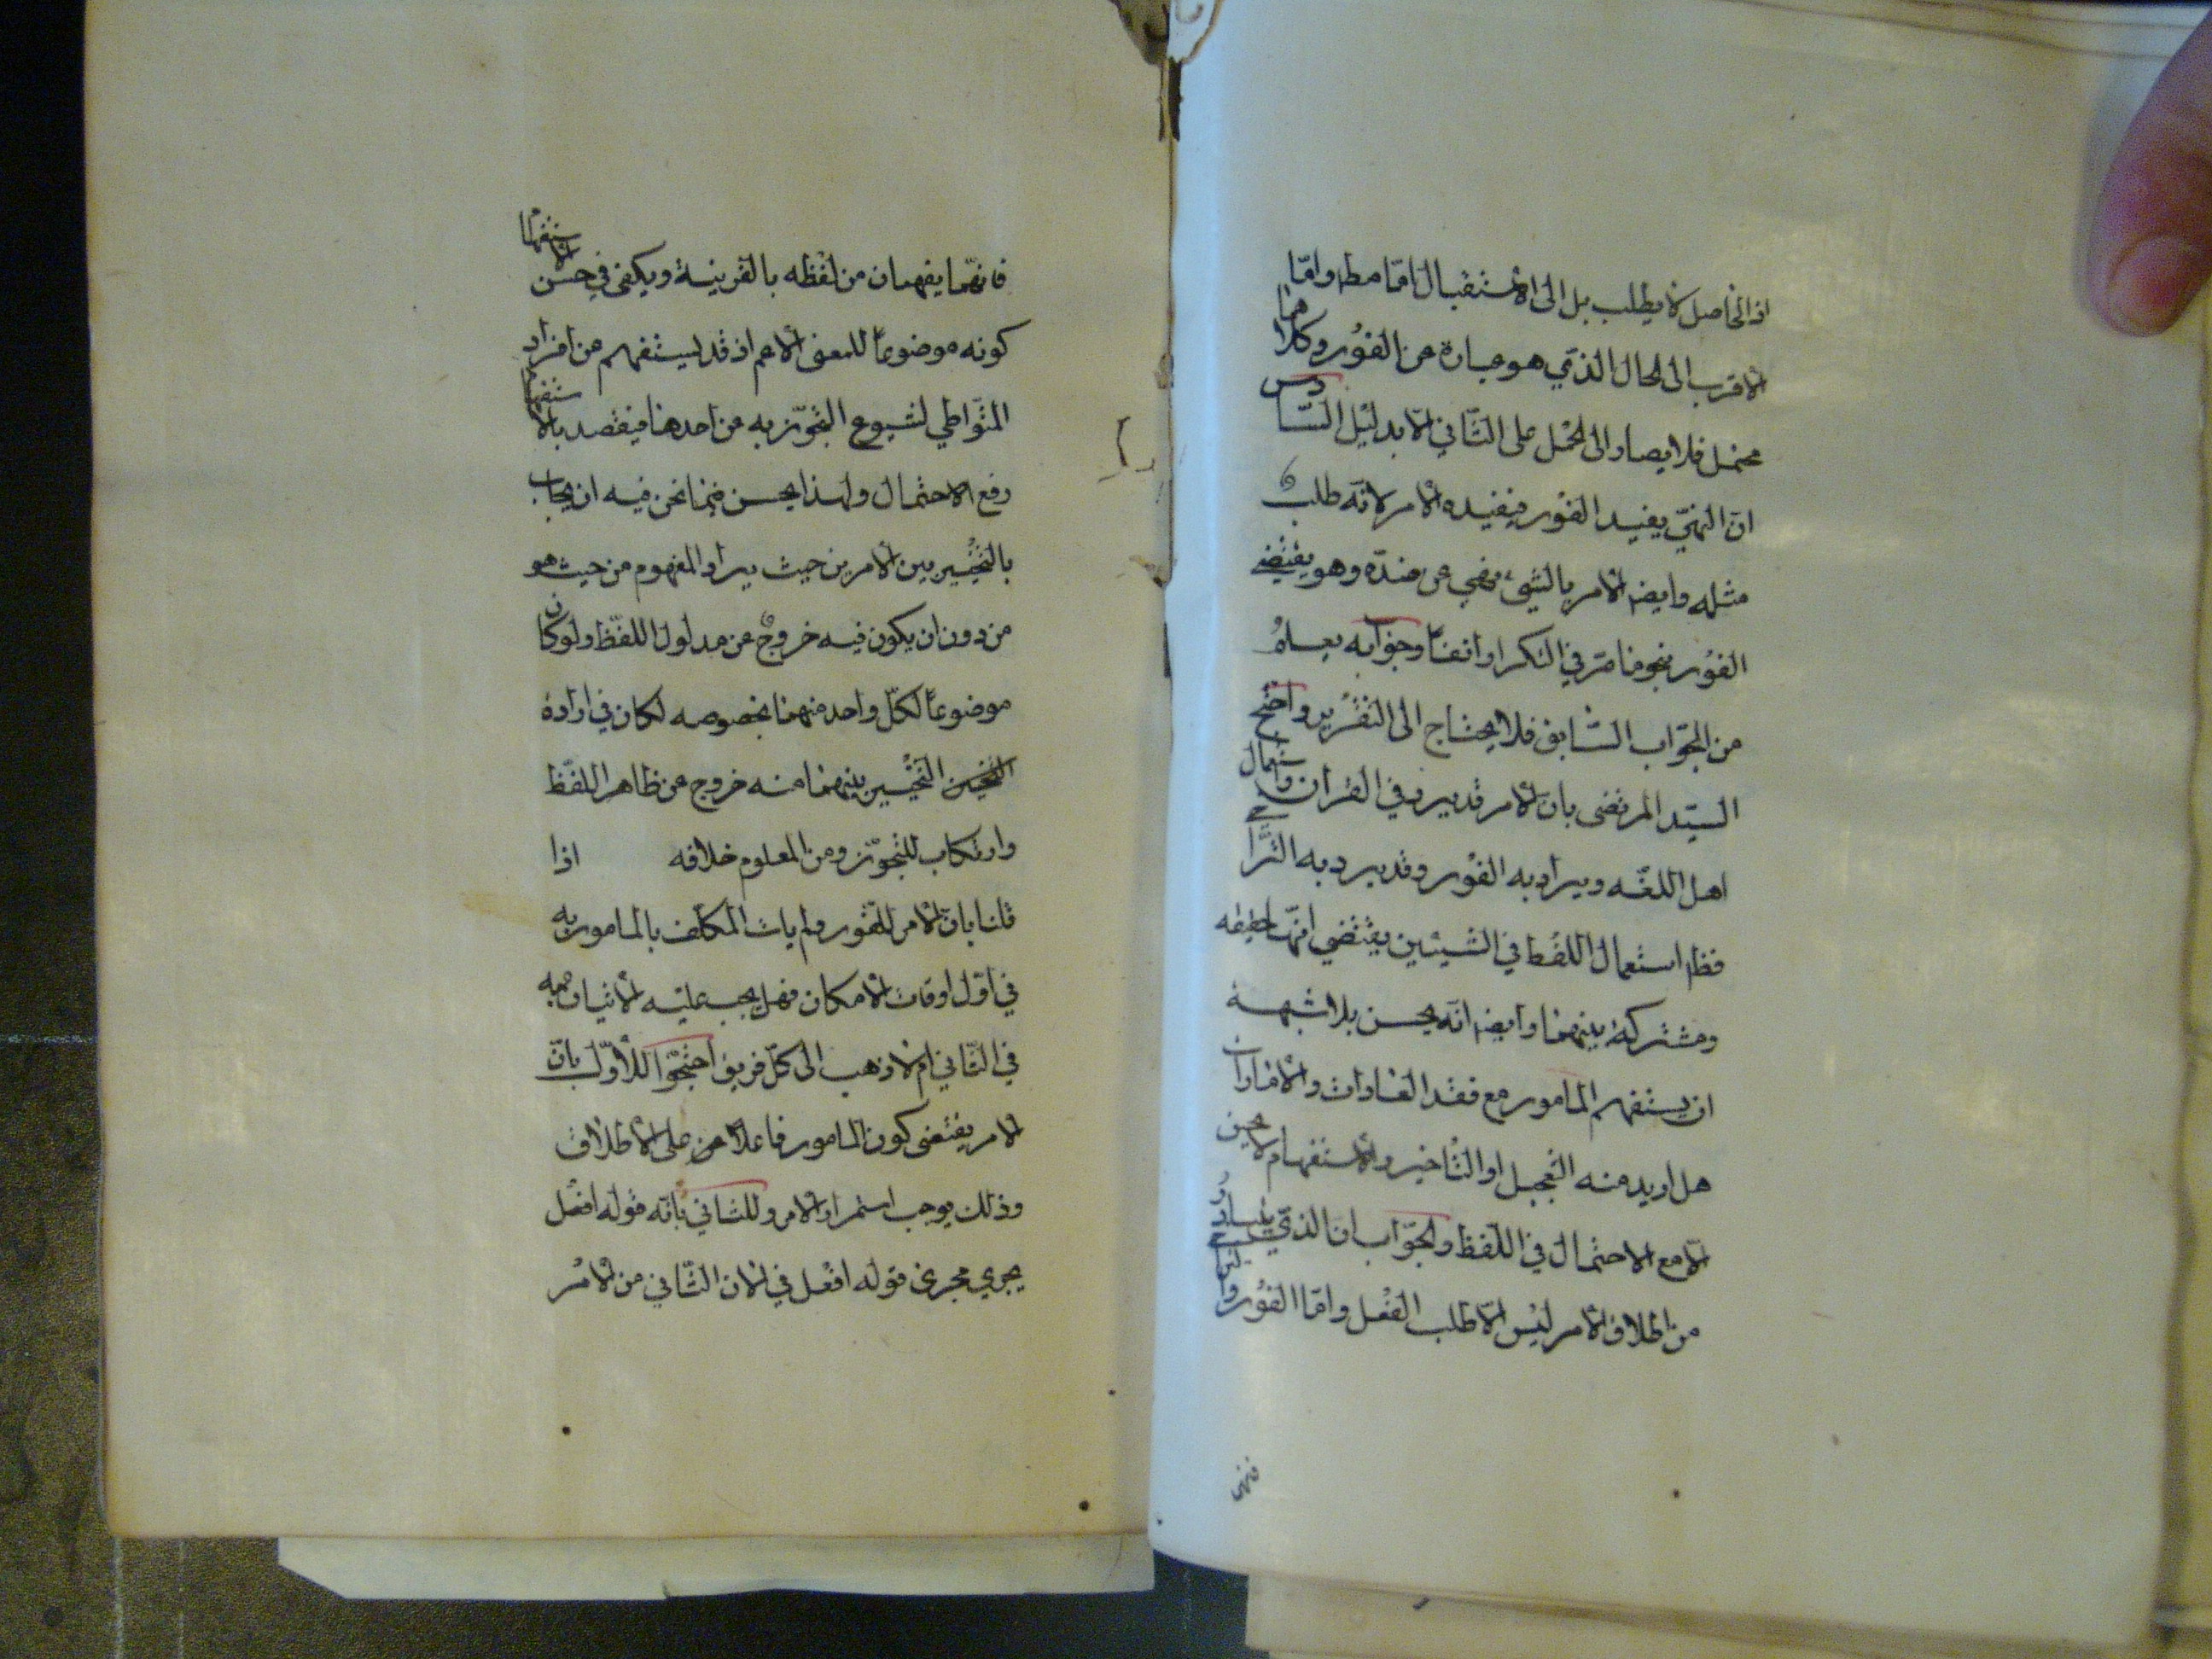 اذ الحاصل لا يطلب بل الى الاستقبال امّا مط وامّا
الاقرب الى الحال الذي هو عبارة عن الفور وكلاهما
محتمل فلا يصار الى الحمل على الثاني الا بدليل السّادس
انّ النهي يفيد الفور فيفيده الامر لانّه طلب
مثله وايضا الامر بالشيء نهي عن ضدّه وهو يقتضي
الفور بنحو ما مرّ في التكرار انفاً وجوابه يعلم
من الجواب السّابق فلا يحتاج الى التقرير واحتج
السيّد المرتضى بان الامر قد يرد في القران واستعمال
اهل اللغة ويراد به الفور وقد يرد به التراخي
فظاهر استعمال اللفظ في الشيئين يقتضي انّها حقيقه
ومشتركة بينهما وايضا انّه يحسن بلا شبهة
ان يستفهم المامور مع فقد العادات والامارات
هل اريد منه التعجيل او التاخير والاستفهام لا يحسن
الا مع الاحتمال في اللفظ والجواب ان الذي يتبادر
من اطلاق الامر ليس الا طلب الفعل وامّا الفور والتراخي
فانهما
فانهما يفهمان من لفظه بالقرينة ويكفي في حسن الاستفهام
كونه موضوعاً للمعنى الاعم اذ قد يستفهم من افراد
المتواطي لشيوع التجوّز به عن احدها فيقصد بالاستفهام
رفع الاحتمال ولهذا يحسن فيما نحن فيه ان يجاب
بالتخيير بين الامرين حيث يراد المفهوم من حيث هو
من دون ان يكون فيه خروج عن مدلول اللفظ ولو كان
موضوعاً لكلّ واحد منهما بخصوصه لكان في ارادة
التخيير التخيير بينهما منه خروج عن ظاهر اللفظ
وارتكاب للتجوّز ومن المعلوم خلافه اذا
قلنا بان الامر للفور ولم يات المكلف بالمامور به
في اوّل اوقات الامكان فهل يجب عليه الاتيان به
في الثاني ام لا ذهب الى كلّ فريق احتجّوا للاوّل بانّ
الامر يقتضى كون المامور فاعلا على الاطلاق
وذلك يوجب استمرار الامر وللثاني بانّه قوله افعل
يجري مجرى قوله افعل في الان الثاني من الامر